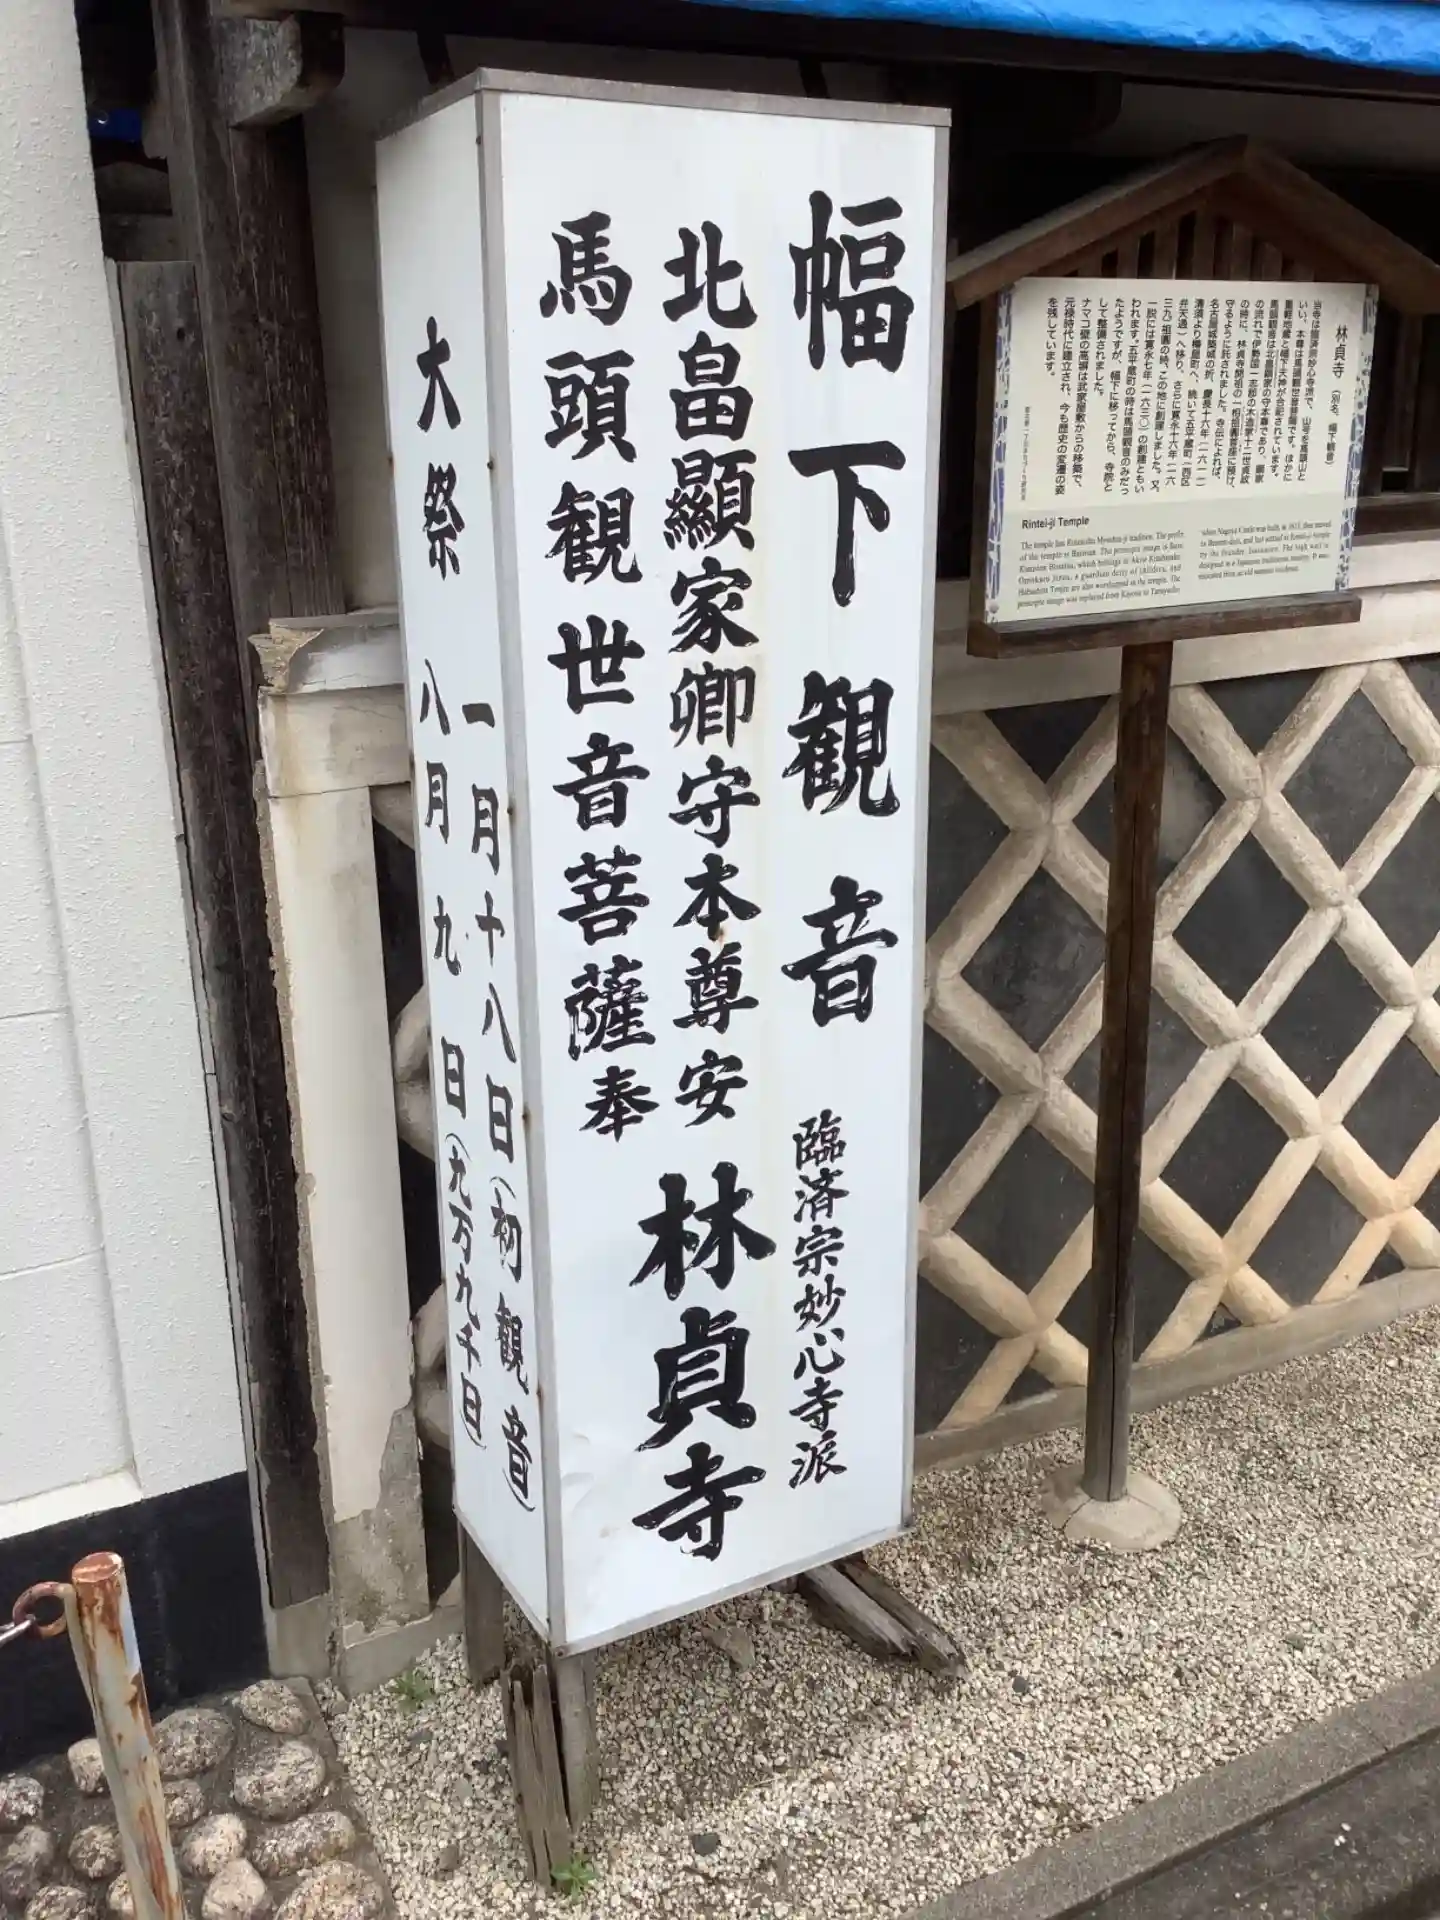 幅下観音 臨済宗妙心寺派
北畠顯家卿守本尊安
馬頭観世音菩薩奉
林貞寺
大祭
一月十八日(初観音)
八月九日(九万九千日)
林貞寺 (別名、幅下観音)
当寺は臨済宗妙心寺派で、山号を馬頭山と
いい、本尊は馬頭観世音菩薩です。ほかに
重軽地蔵と幅下天神が合祀されています。
馬頭観音は北畠顕家の守本尊であり、顕家
の流れで伊勢国一志郡の木造家十二世貞政
の時に、林貞寺開祖の「桓祖儀首座に預け、
守るように託されました。寺伝によれば、
名古屋城築城の折、慶長十六年(一六一一)
清須より樽屋町へ、続いて五平蔵町(西区
弁天通)へ移り、さらに寛永十六年(一六
三九)祖圓の時、この地に創建しました。又、
一説には寛永七年(一六三〇)の創建ともい
われます。五平蔵町の時は馬頭観音のみだっ
たようですが、幅下に移ってから、寺院と
して整備されました。
ナマコ壁の高塀は武家屋敷からの移築で、
元禄時代に建立され、今も歴史の変遷の姿
を残しています。
Rintei-ji Temple
The temple has Rinzaishu Myoshin-ji tradition. The prefix
of the temple is Batosan. The principle image is Bato
Kanzeon Bosatsu, which belongs to Akiie Kitabatake.
Omokaru Jizou, a guardian deity of children, and
Habashita Tenjin are also worshipped in the temple. The
principle image was replaced from Kiyosu to Taruyacho
when Nagoya Castle was built, in 1611, then moved
to Benten-dori, and last settled at Rintei-ji temple
by the founder,
The high wall is
designed in a Japanese traditional manner. It was
relocated from an old samurai residence.